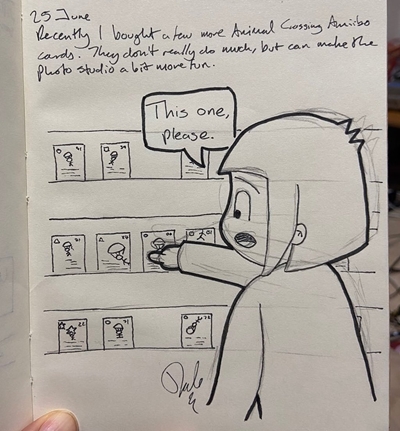 25 June
Recently I bought a few more Animal Crossing Amiibo
cards. They don't really do much, but can make the
photo studio a bit more fun.
This one,
please.